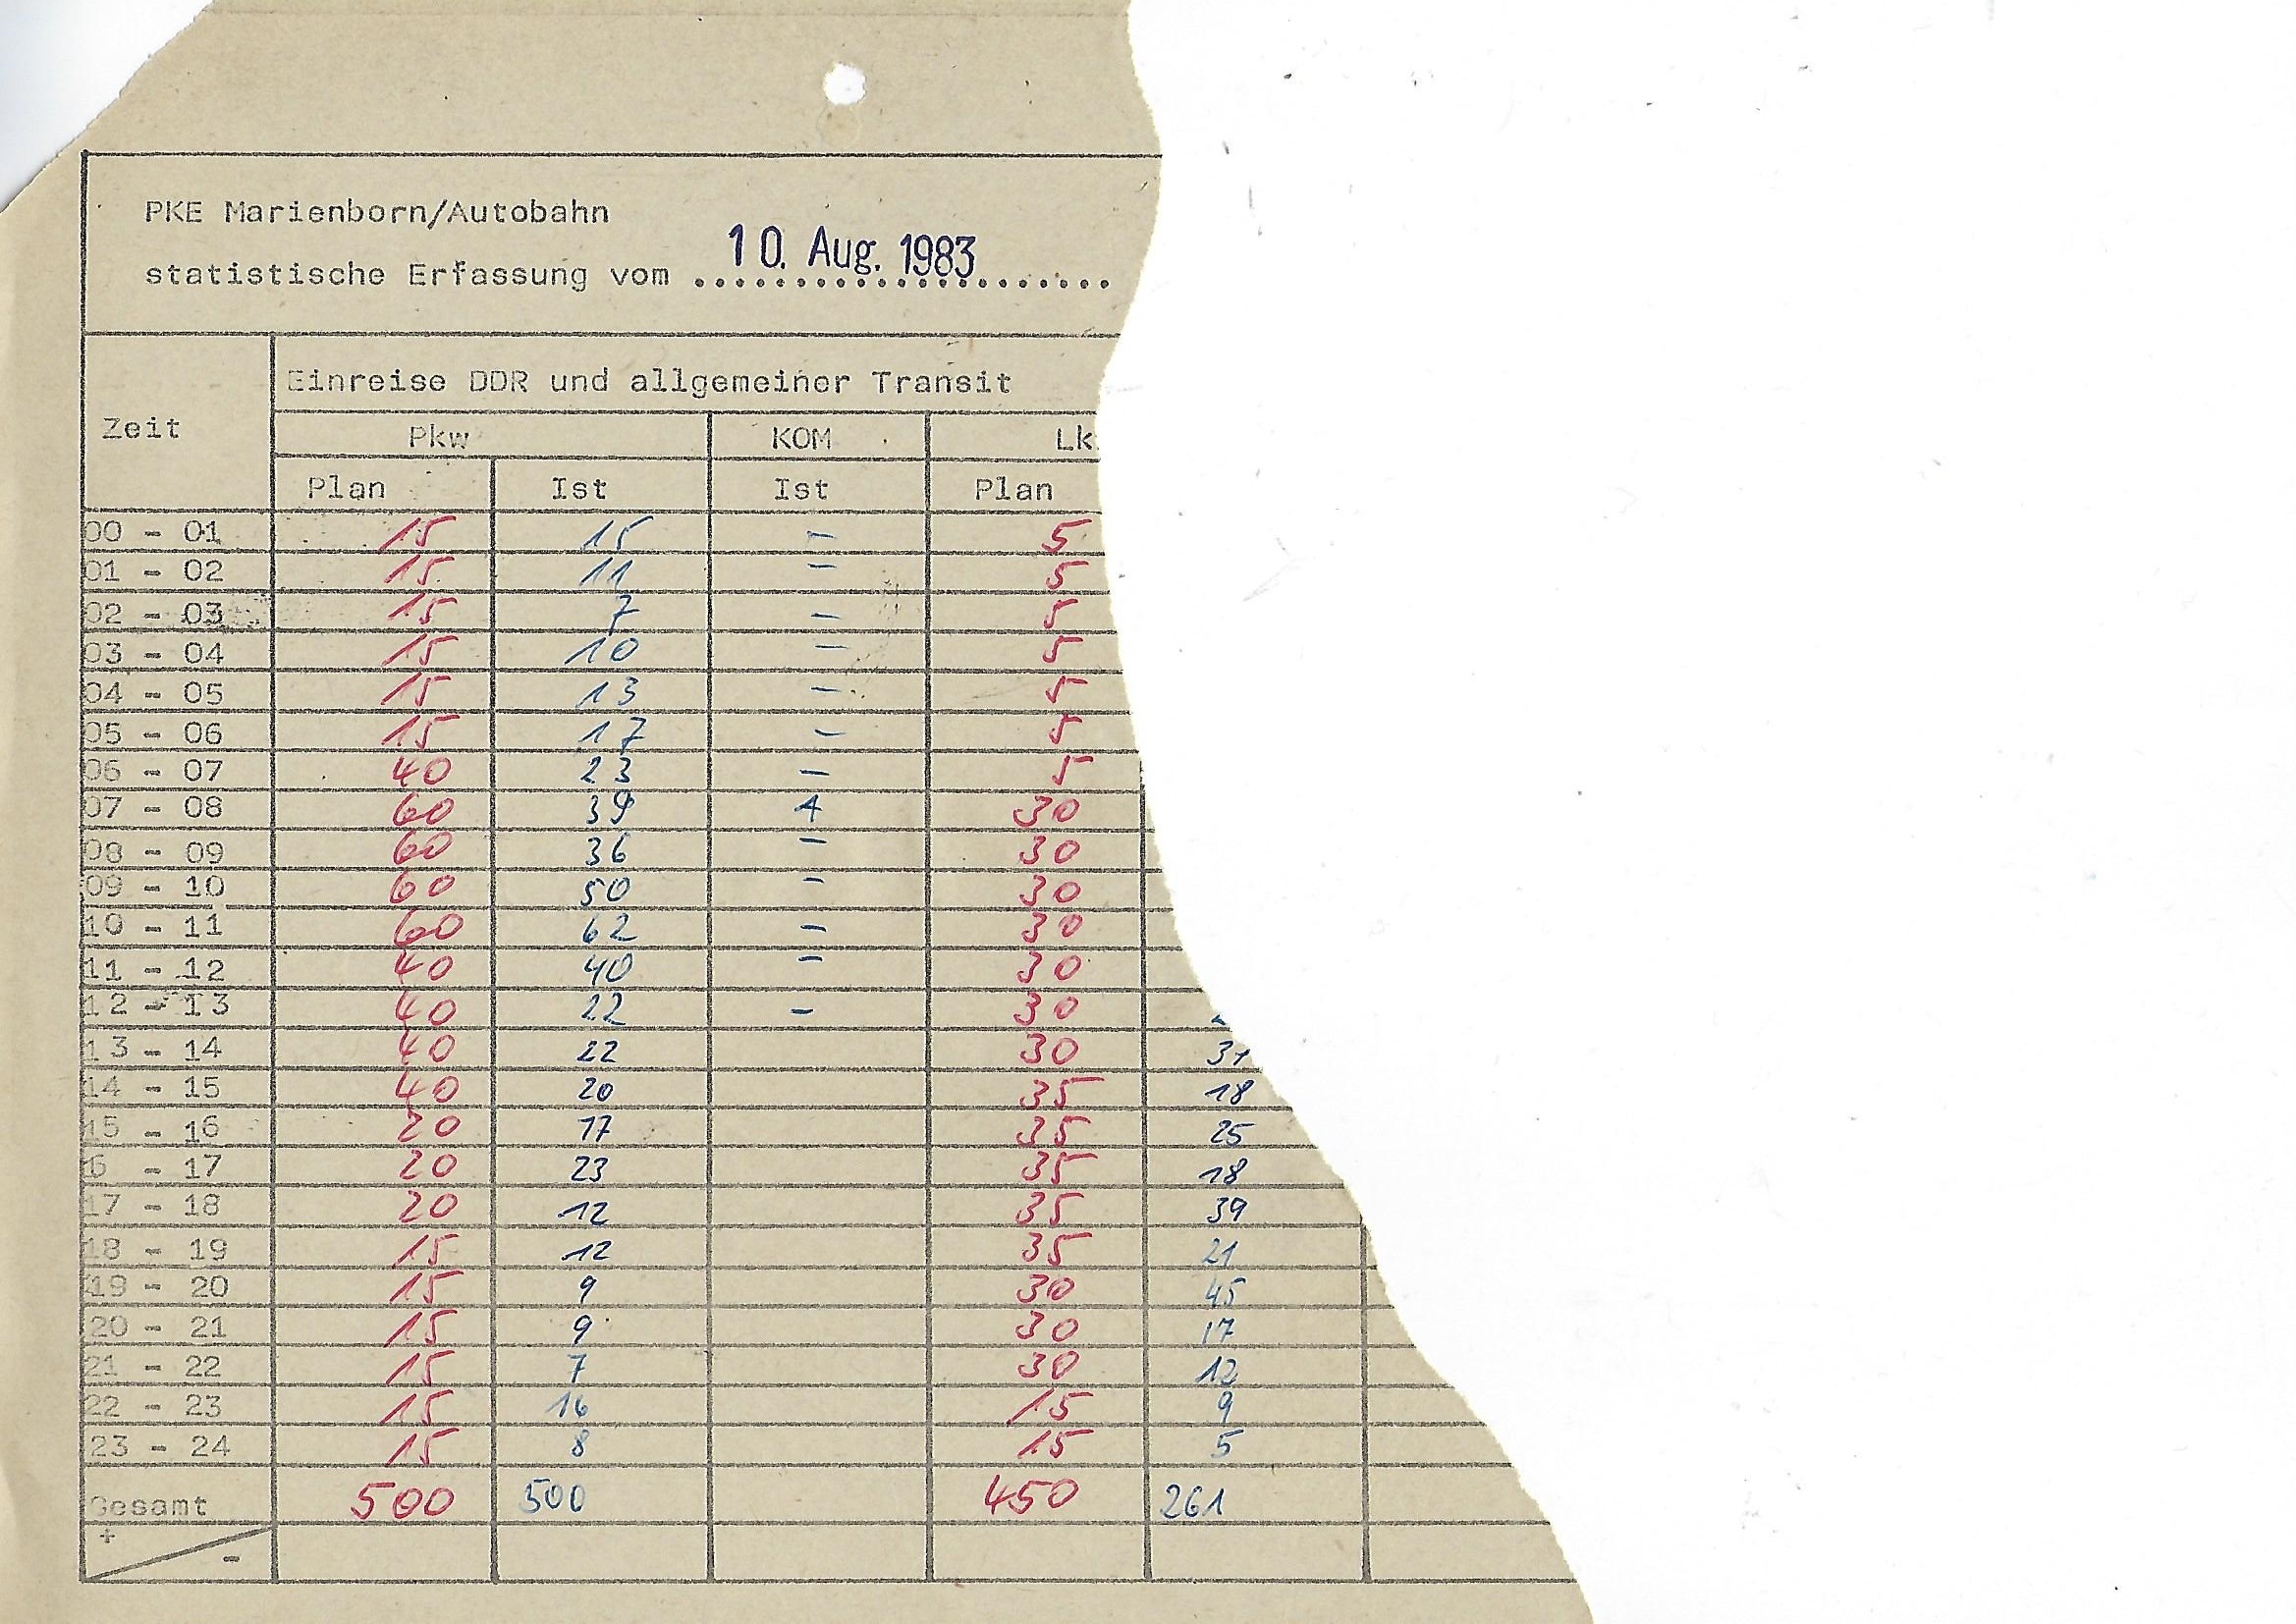 PKE Marienborn/Autobahn
statistische Erfassung vom 10. Aug. 1983
Zeit
Einreise DDR und allgemeiner Transit
Pkw KOM Lk
Plan Ist Ist Plan
00 - 01 15 15 – 5
01 - 02 15 11 – 5
02 - 03 15 7 – 5
03 - 04 15 10 – 5
04 - 05 15 13 – 5
05 - 06 15 17 – 5
06 - 07 40 23 – 5
07 - 08 60 39 4 30
08 - 09 60 36 – 30
09 - 10 60 50 – 30
10 - 11 60 62 – 30
11 - 12 40 40 – 30
12 - 13 40 22 – 30
13 - 14 40 22 30 31
14 - 15 40 20 35 18
15 - 16 20 17 35 25
6 - 17 20 23 35 18
17 - 18 20 12 35 39
18 - 19 15 12 35 21
19 - 20 15 9 30 45
20 - 21 15 9 30 17
21 - 22 15 7 30 12
22 - 23 15 16 15 9
23 - 24 15 8 15 5
Gesamt 500 500 450 261
+
-